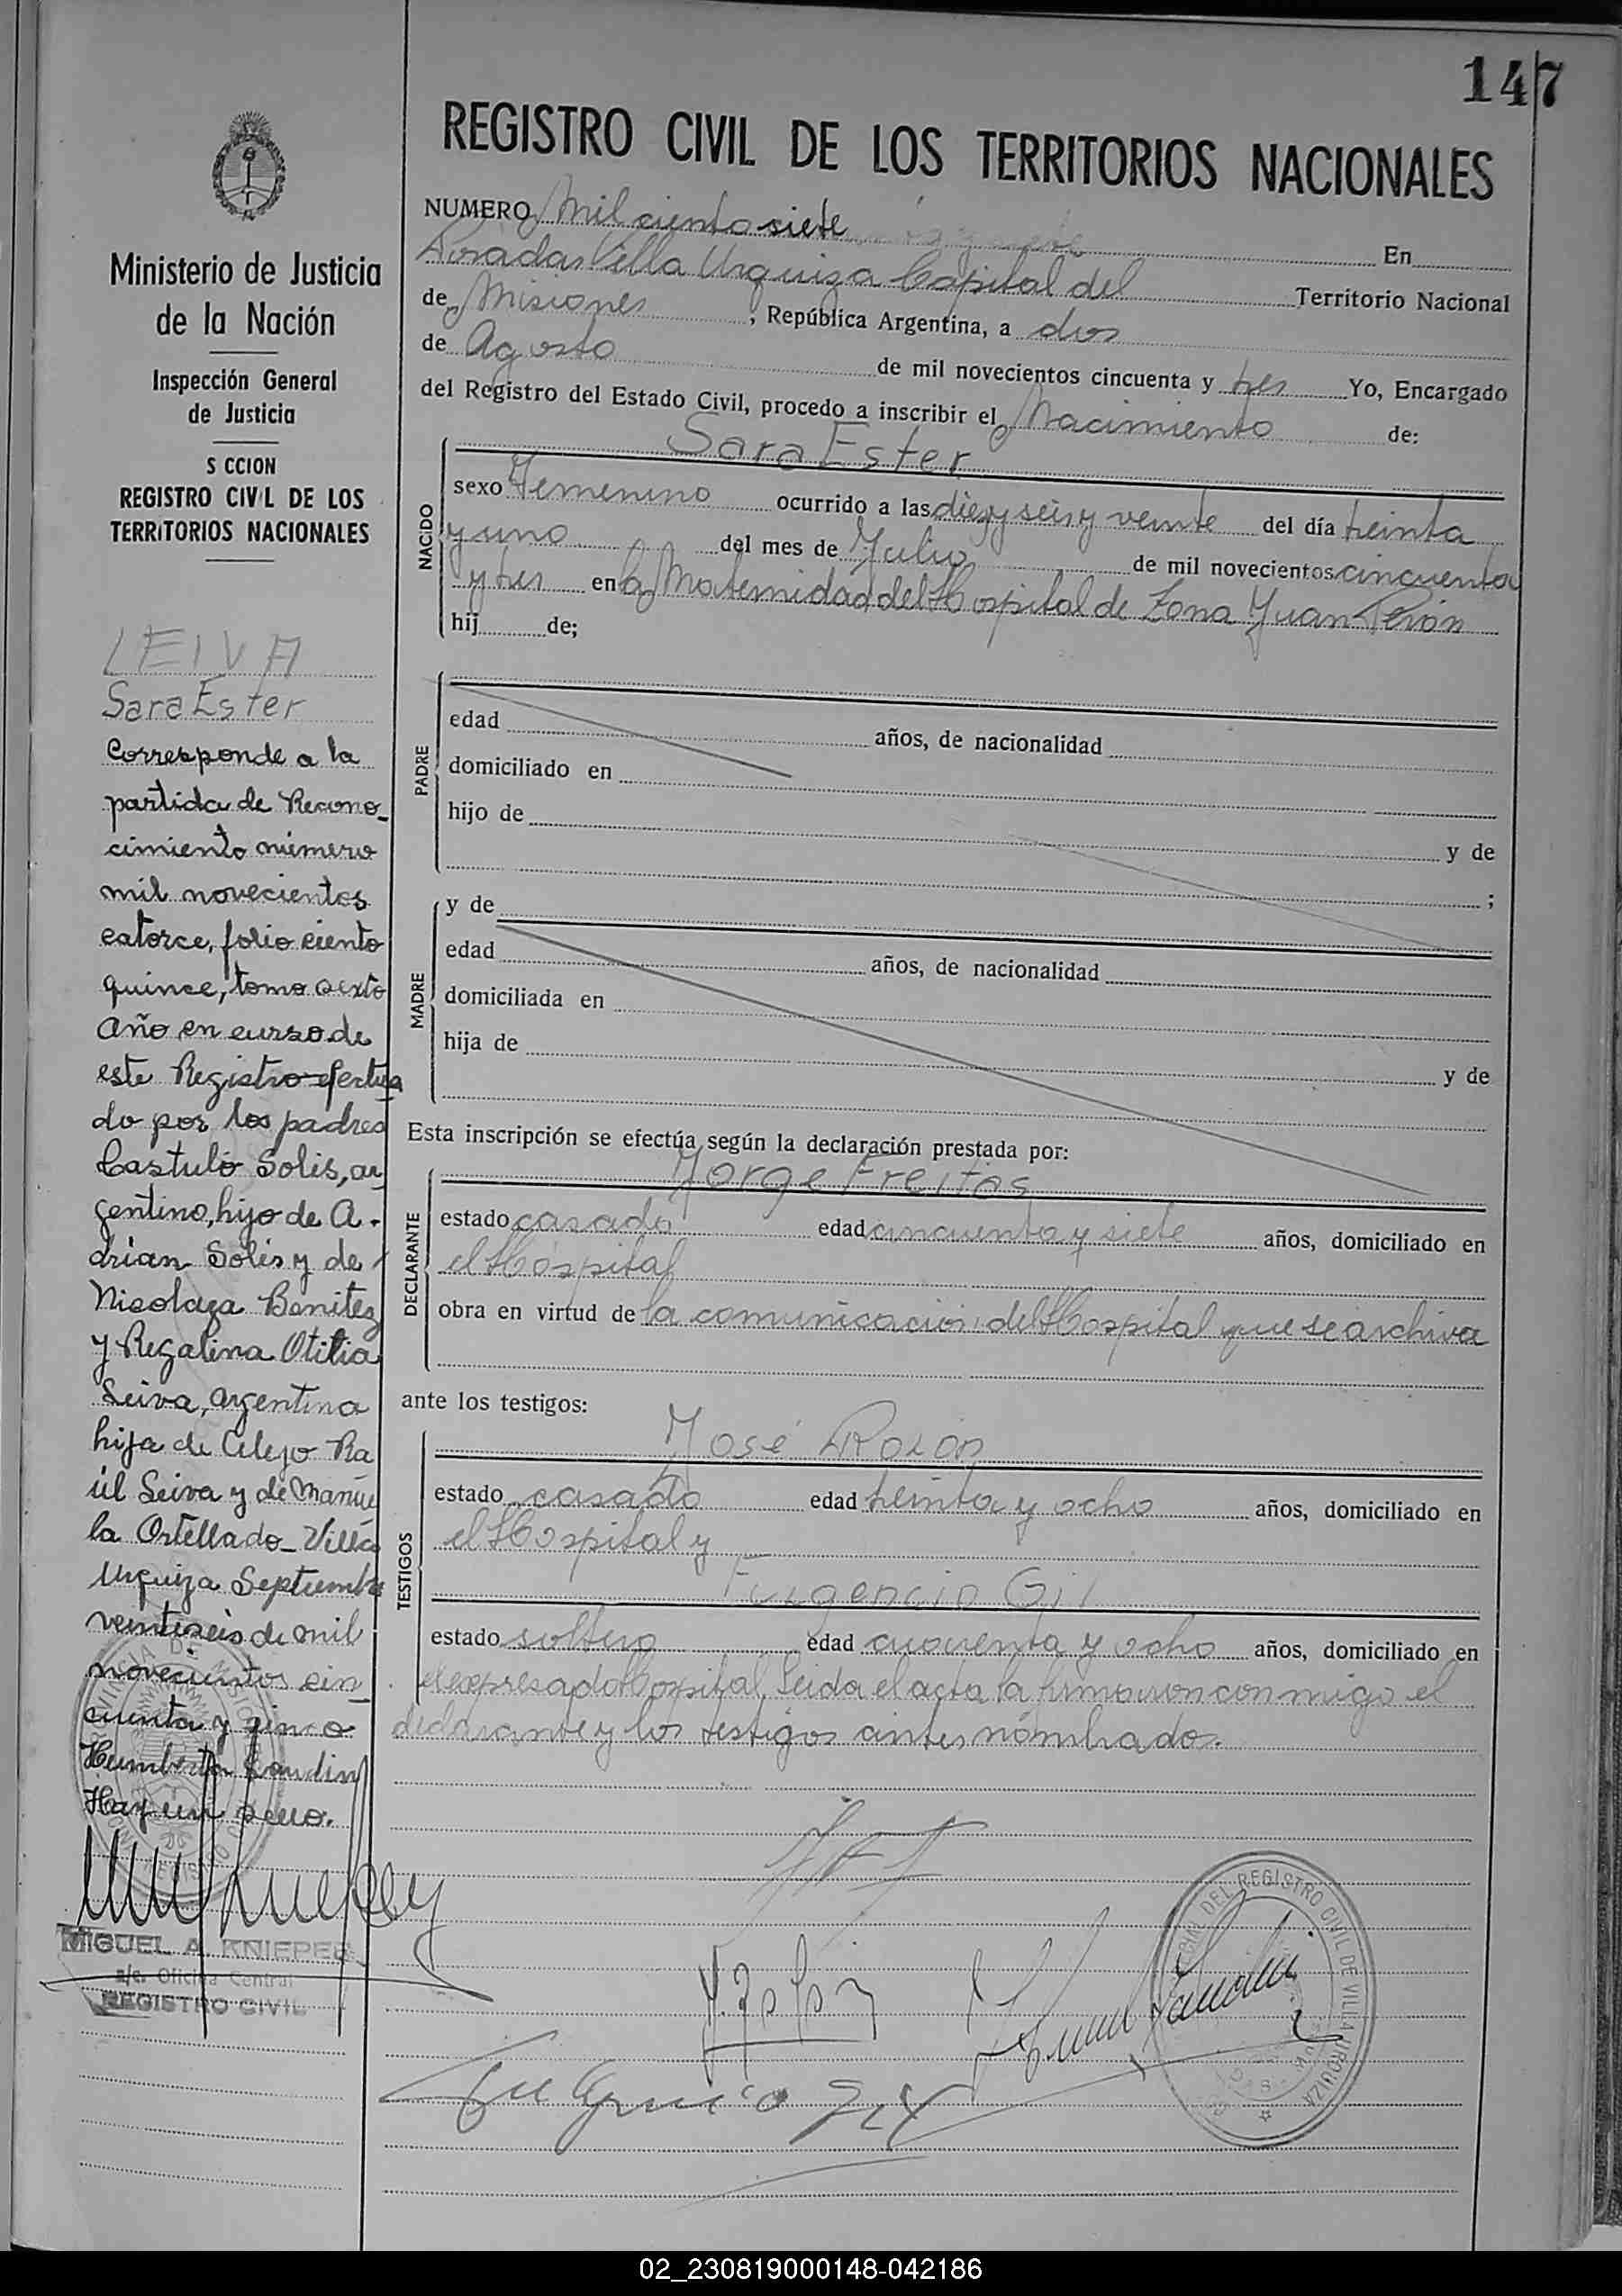 147
REGISTRO CIVIL DE LOS TERRITORIOS NACIONALES
Ministerio de Justicia
de la Nación
Inspección General
de Justicia
S CCION
REGISTRO CIVIL DE LOS
TERRITORIOS NACIONALES
LEIVA
Sara Ester
Corresponde a la
partida de Recono_
cimiento número
mil novecientos
catorce, folio ciento
quince, tomo sexto
año en curso de
este Registro efectua
do por los padres
Castulo Solis, ar
gentino, hijo de A-
drian Solis y de
Nicolaza Benitez
y Regalina Otilia
Leiva, argentina
hija de Celejo Ra
úl Leiva y de Manue
la Ortellado_Villa
Urquiza Septiembre
veintiseis de mil
novecientos cin_
cuenta y cinco
Humberto Landin
Hay un sello.
MIGUEL A. KNIEPER
a/c. Oficina Central
REGISTRO CIVIL
NUMERO Mil ciento siete En
Posadas Villa Urquiza Capital del Territorio Nacional
de Misiones, República Argentina, a dos
de Agosto de mil novecientos cincuenta y tres Yo, Encargado
del Registro del Estado Civil, procedo a inscribir el Nacimiento de:
Sara Ester
NACIDO
sexo Femenino ocurrido a las diez y seis y veinte del día treinta
y uno del mes de Julio de mil novecientos cincuenta
y tres en la Maternidad del Hospital de Zona Juan Perón
hij de;
PADRE
edad años, de nacionalidad
domiciliado en
hijo de y de
;
MADRE
y de
edad años, de nacionalidad
domiciliada en
hija de y de
Esta inscripción se efectúa según la declaración prestada por:
Jorge Freitas
DECLARANTE
estado casado edad cincuenta y siete años, domiciliado en
el Hospital
obra en virtud de la comunicacion del Hospital que se archiva
ante los testigos:
José Rolón
TESTIGOS
estado casado edad treinta y ocho años, domiciliado en
el Hospital y
Fulgencio Gil
estado soltero edad cuarenta y ocho años, domiciliado en
el expresado Hospital. Leida el acta la firmaron conmigo el
declarante y los testigos antes nombrados.
Fulgencio Gil
DEL REGISTRO CIVIL DE VILLA URQUIZA
02_230819000148-042186